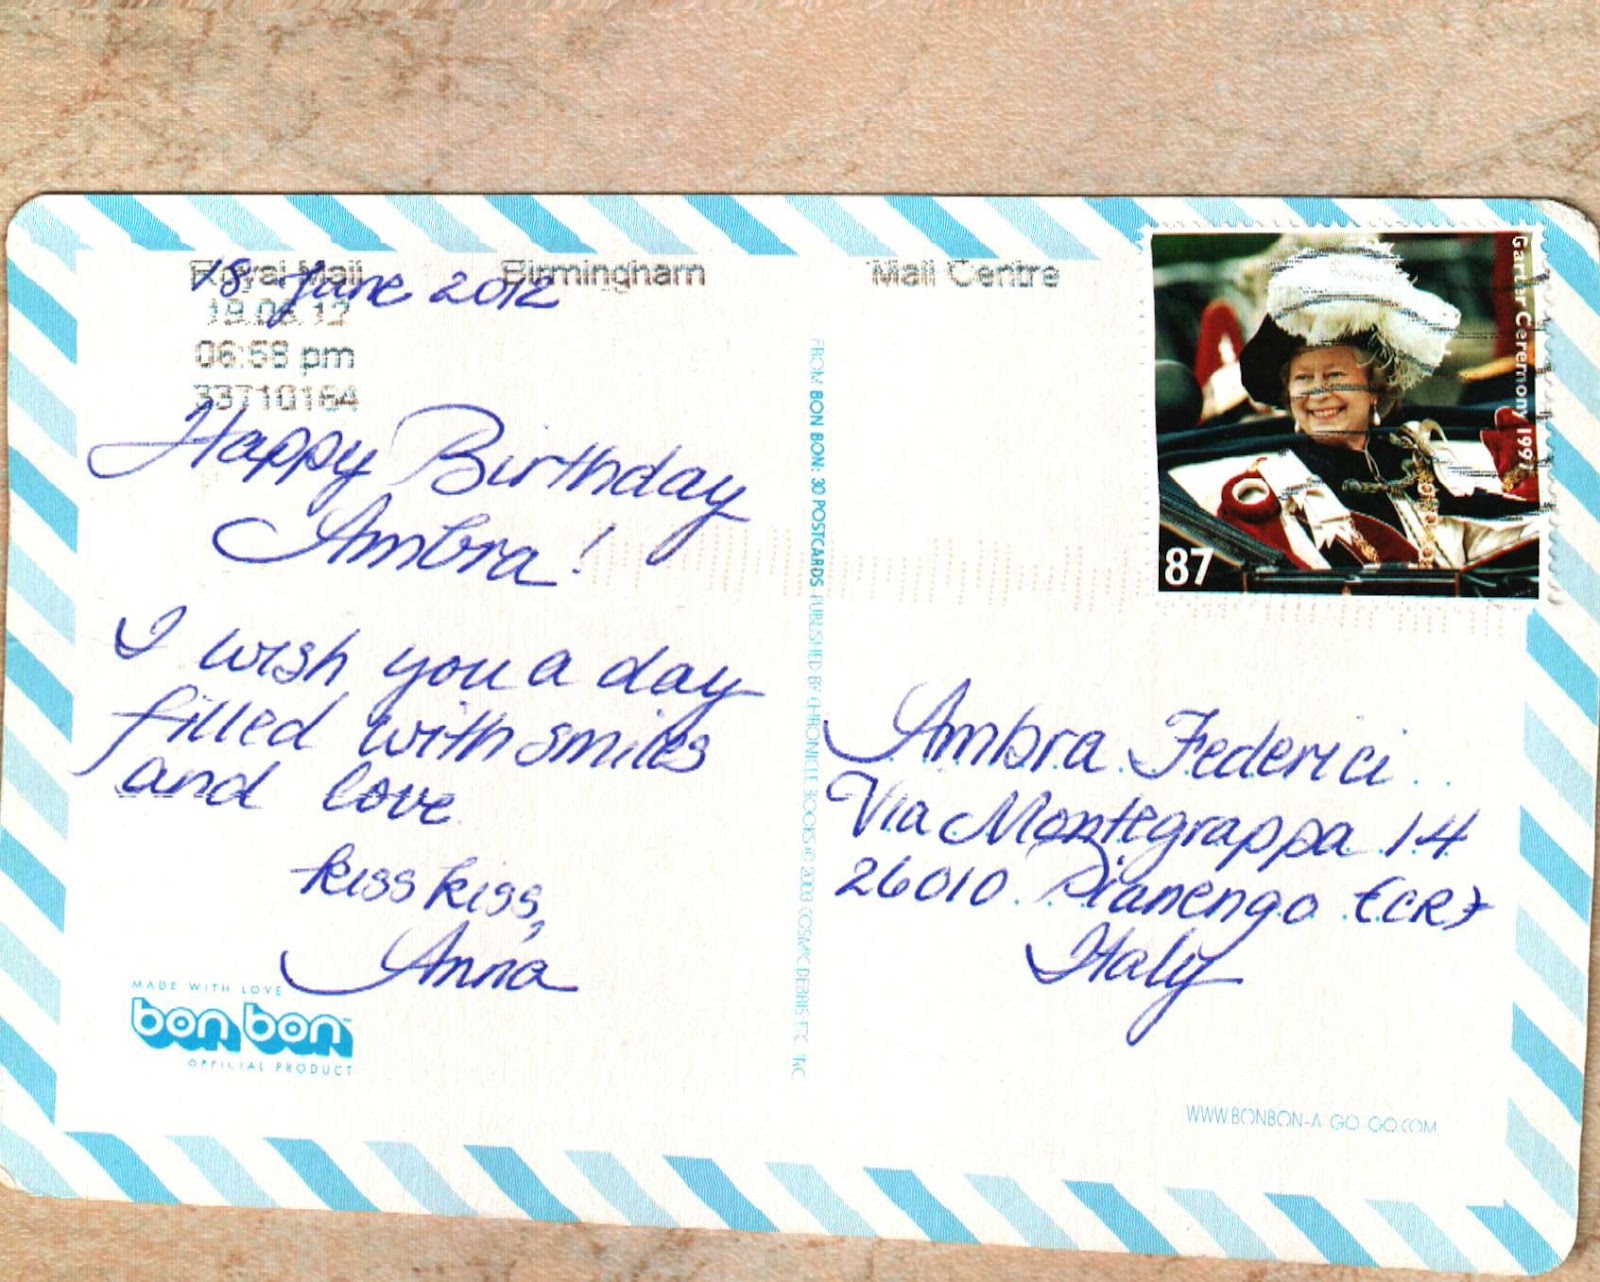 Royal Mail Birmingham Mail Centre
18 June 2012
19.06.12
06:58 pm
33710164
Happy Birthday
Ambra!
I wish you a day
filled with smiles
and love.
kiss kiss,
Anna
MADE WITH LOVE
bon bon™
OFFICIAL PRODUCT
FROM BON BON: 30 POSTCARDS. PUBLISHED BY CHRONICLE BOOKS © 2003 COSMIC DEBRIS ETC. INC.
Garter Ceremony 1997
87
Ambra Federici
Via Montegrappa 14
26010 Pianengo (CR)
Italy
WWW.BONBON-A-GO-GO.COM